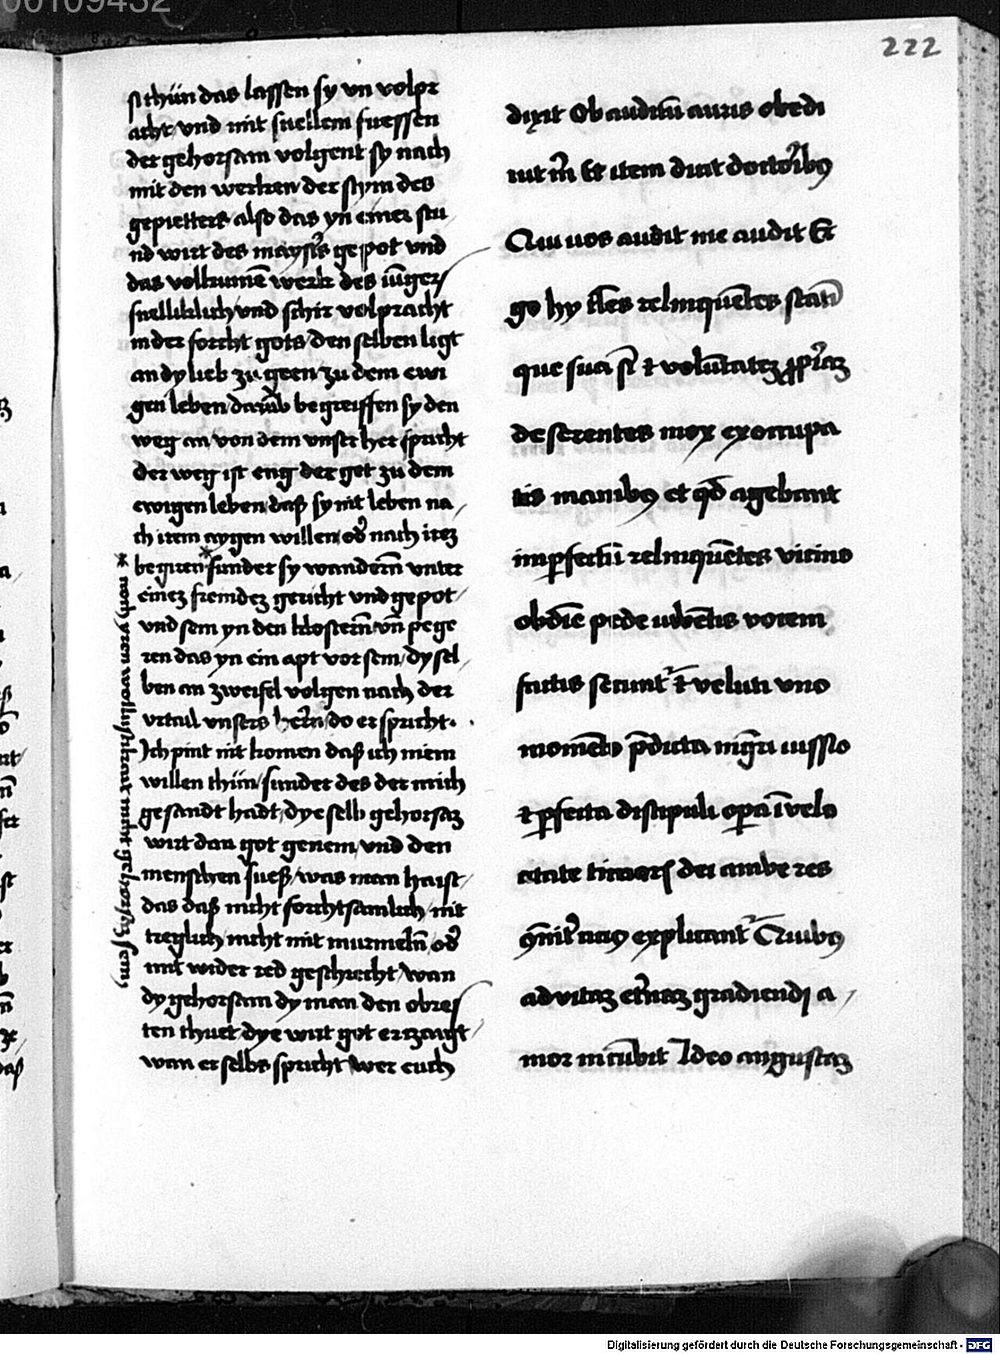 222
sthün das lassen sy vn volpr
acht vnd mit snellem fuessen
der gehorsam volgent sy nach
mit den werken der stym des
gepietters also das yn einer stu
nd wirt des maysters gepot vnd
das volkumē werk des iūger
snelliklich vnd schir volpracht
in der forcht gots den selben ligt
an dy lieb zu geen zu dem ewi
gen leben darūb begreiffen sy den
weg an von dem vnser her spricht
der weg ist eng der get zu dem
ewigen leben daß sy nit leben na
ch irem aygen willen od' nach irez
begiren sunder sy wandern̄ vnter
einez fremdez gericht vnd gepot
vnd sem yn den klostern̄ vn̄ pege
ren das yn ein apt vor sem dy sel
ben an zweifel volgen nach der
vrtail vnsers hern̄ do er spricht
Ich pint nit komen daß ich mem
willen thün sunder des der mich
gesandt hadt dye selb gehorsaz
wirt dan got genem vnd den
menschen sueß was man haist
das daß nicht forchtsamlich nit
treglich nicht mit murmeln̄ od'
mit wider red geschiecht wan
dy gehorsam dy man den obres
ten thuet dye wirt got erzaigt
wan er selbs spricht wer euch
noch yren wollust nicht gehorsam sem
dixit Ob auditū auris obedi
uit m̄ Et item dicit doctorib9
Qui uos audit me audit E
go hy tl̄es relinquētes stati
que sua sī et volūtatez ꝓpriaz
deserentes mox exoccupa
tis manib9 et qd̄ agebant
imꝑfectū relinquētes vicino
obdīe pede iubētis vocem
factis secunt' Et veluti vno
momēto p̄dicta mgr̄i iussio
et ꝑfecta discipuli oꝑa ī velo
citate timoris dei ambe res
9mit' cicius explicant' Quib9
ad vitaz et'naz gradiendi a
mor incūbit Ideo angustaz
Digitalisierung gefördert durch die Deutsche Forschungsgemeinschaft - DFG